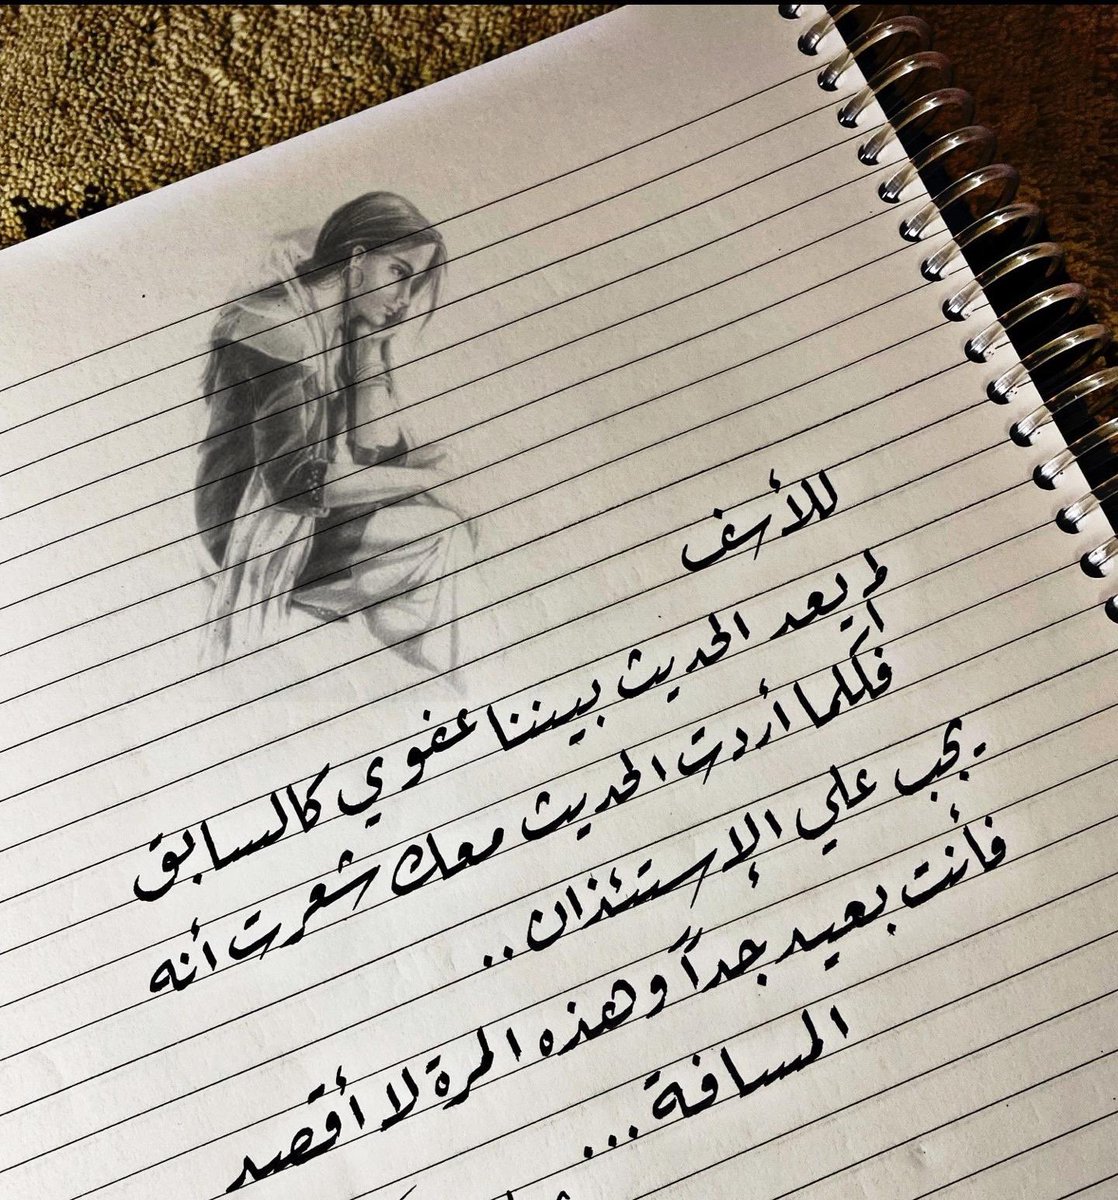 للأسف
لم يعد الحديث بيننا عفوي كالسابق
فكلما أردت الحديث معك شعرت أنه
يجب علي الإستئذان..
فأنت بعيد جداً وهذه المرة لا أقصد
المسافة...